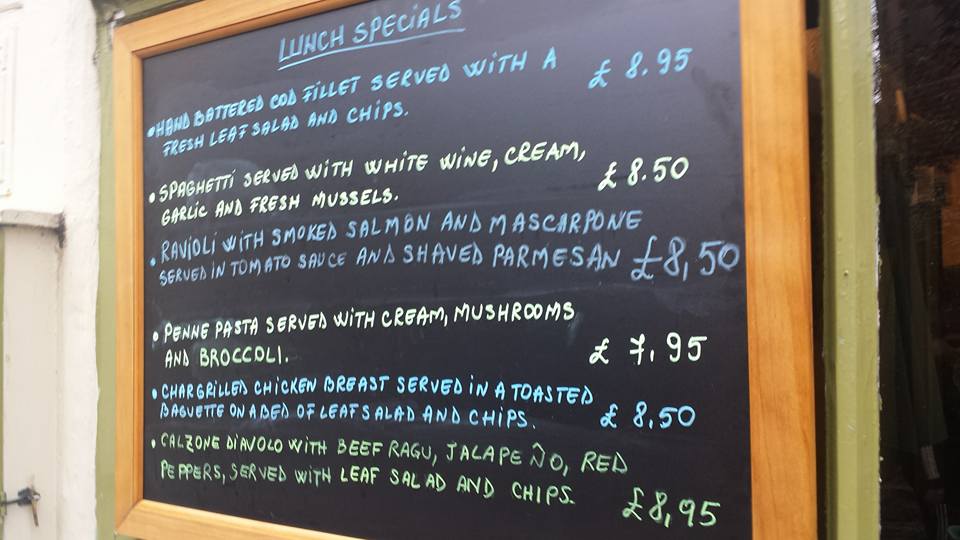 LUNCH SPECIALS
• HAND BATTERED COD FILLET SERVED WITH A £ 8.95
FRESH LEAF SALAD AND CHIPS.
• SPAGHETTI SERVED WITH WHITE WINE, CREAM, £ 8.50
GARLIC AND FRESH MUSSELS.
• RAVIOLI WITH SMOKED SALMON AND MASCARPONE
SERVED IN TOMATO SAUCE AND SHAVED PARMESAN £8,50
• PENNE PASTA SERVED WITH CREAM, MUSHROOMS
AND BROCCOLI. £ 7.95
• CHARGRILLED CHICKEN BREAST SERVED IN A TOASTED
BAGUETTE ON A BED OF LEAF SALAD AND CHIPS. £ 8.50
• CALZONE DIAVOLO WITH BEEF RAGU, JALAPEÑO, RED
PEPPERS, SERVED WITH LEAF SALAD AND CHIPS. £8,95